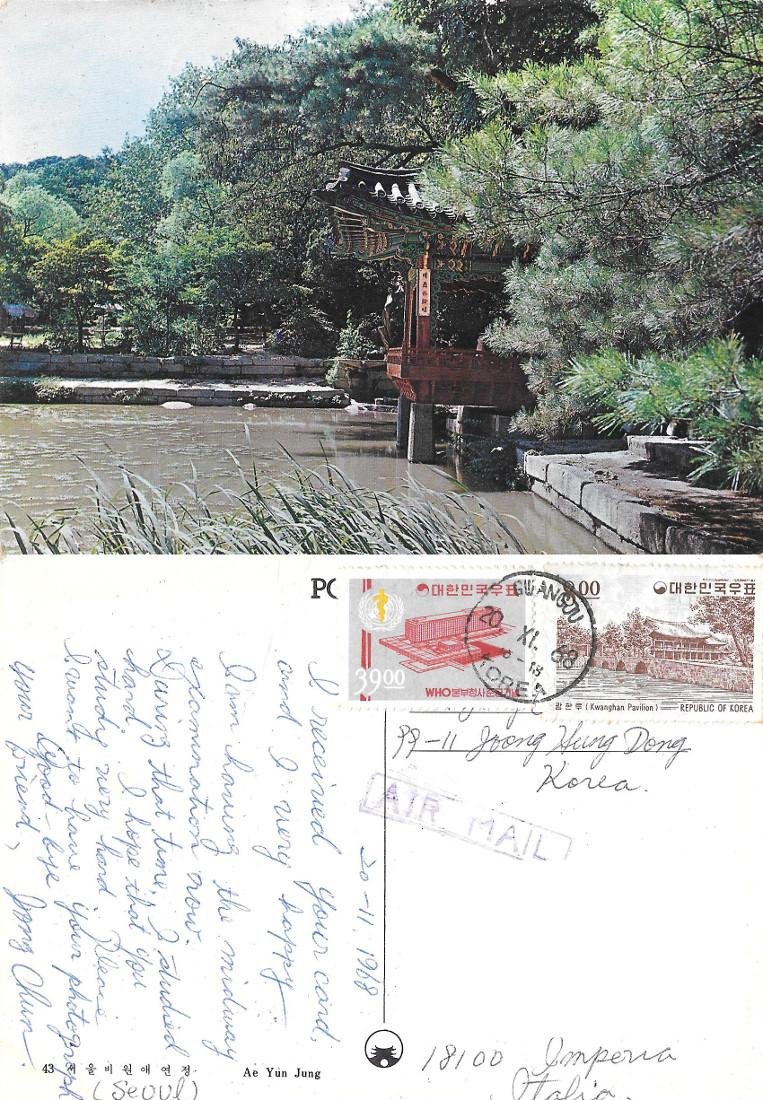 PO
대한민국우표
39.00
WHO본부청사준공기념
GWANGJU
20 XI. 68
KOREA
.00
대한민국우표
광한루 (Kwanghan Pavilion)
REPUBLIC OF KOREA
99-11 Joong Hung Dong
Korea.
AIR MAIL
20-11. 1968
I received your card,
and I very happy
I am having the midway
exammination now.
During that time, I studied
hard I hope that you
study very hard Please
I want to have your photograph
Good-bye
your friend, Jong Chun.
43 서울비원애연정
Ae Yun Jung
(Seoul)
18100 Imperia
Italia.